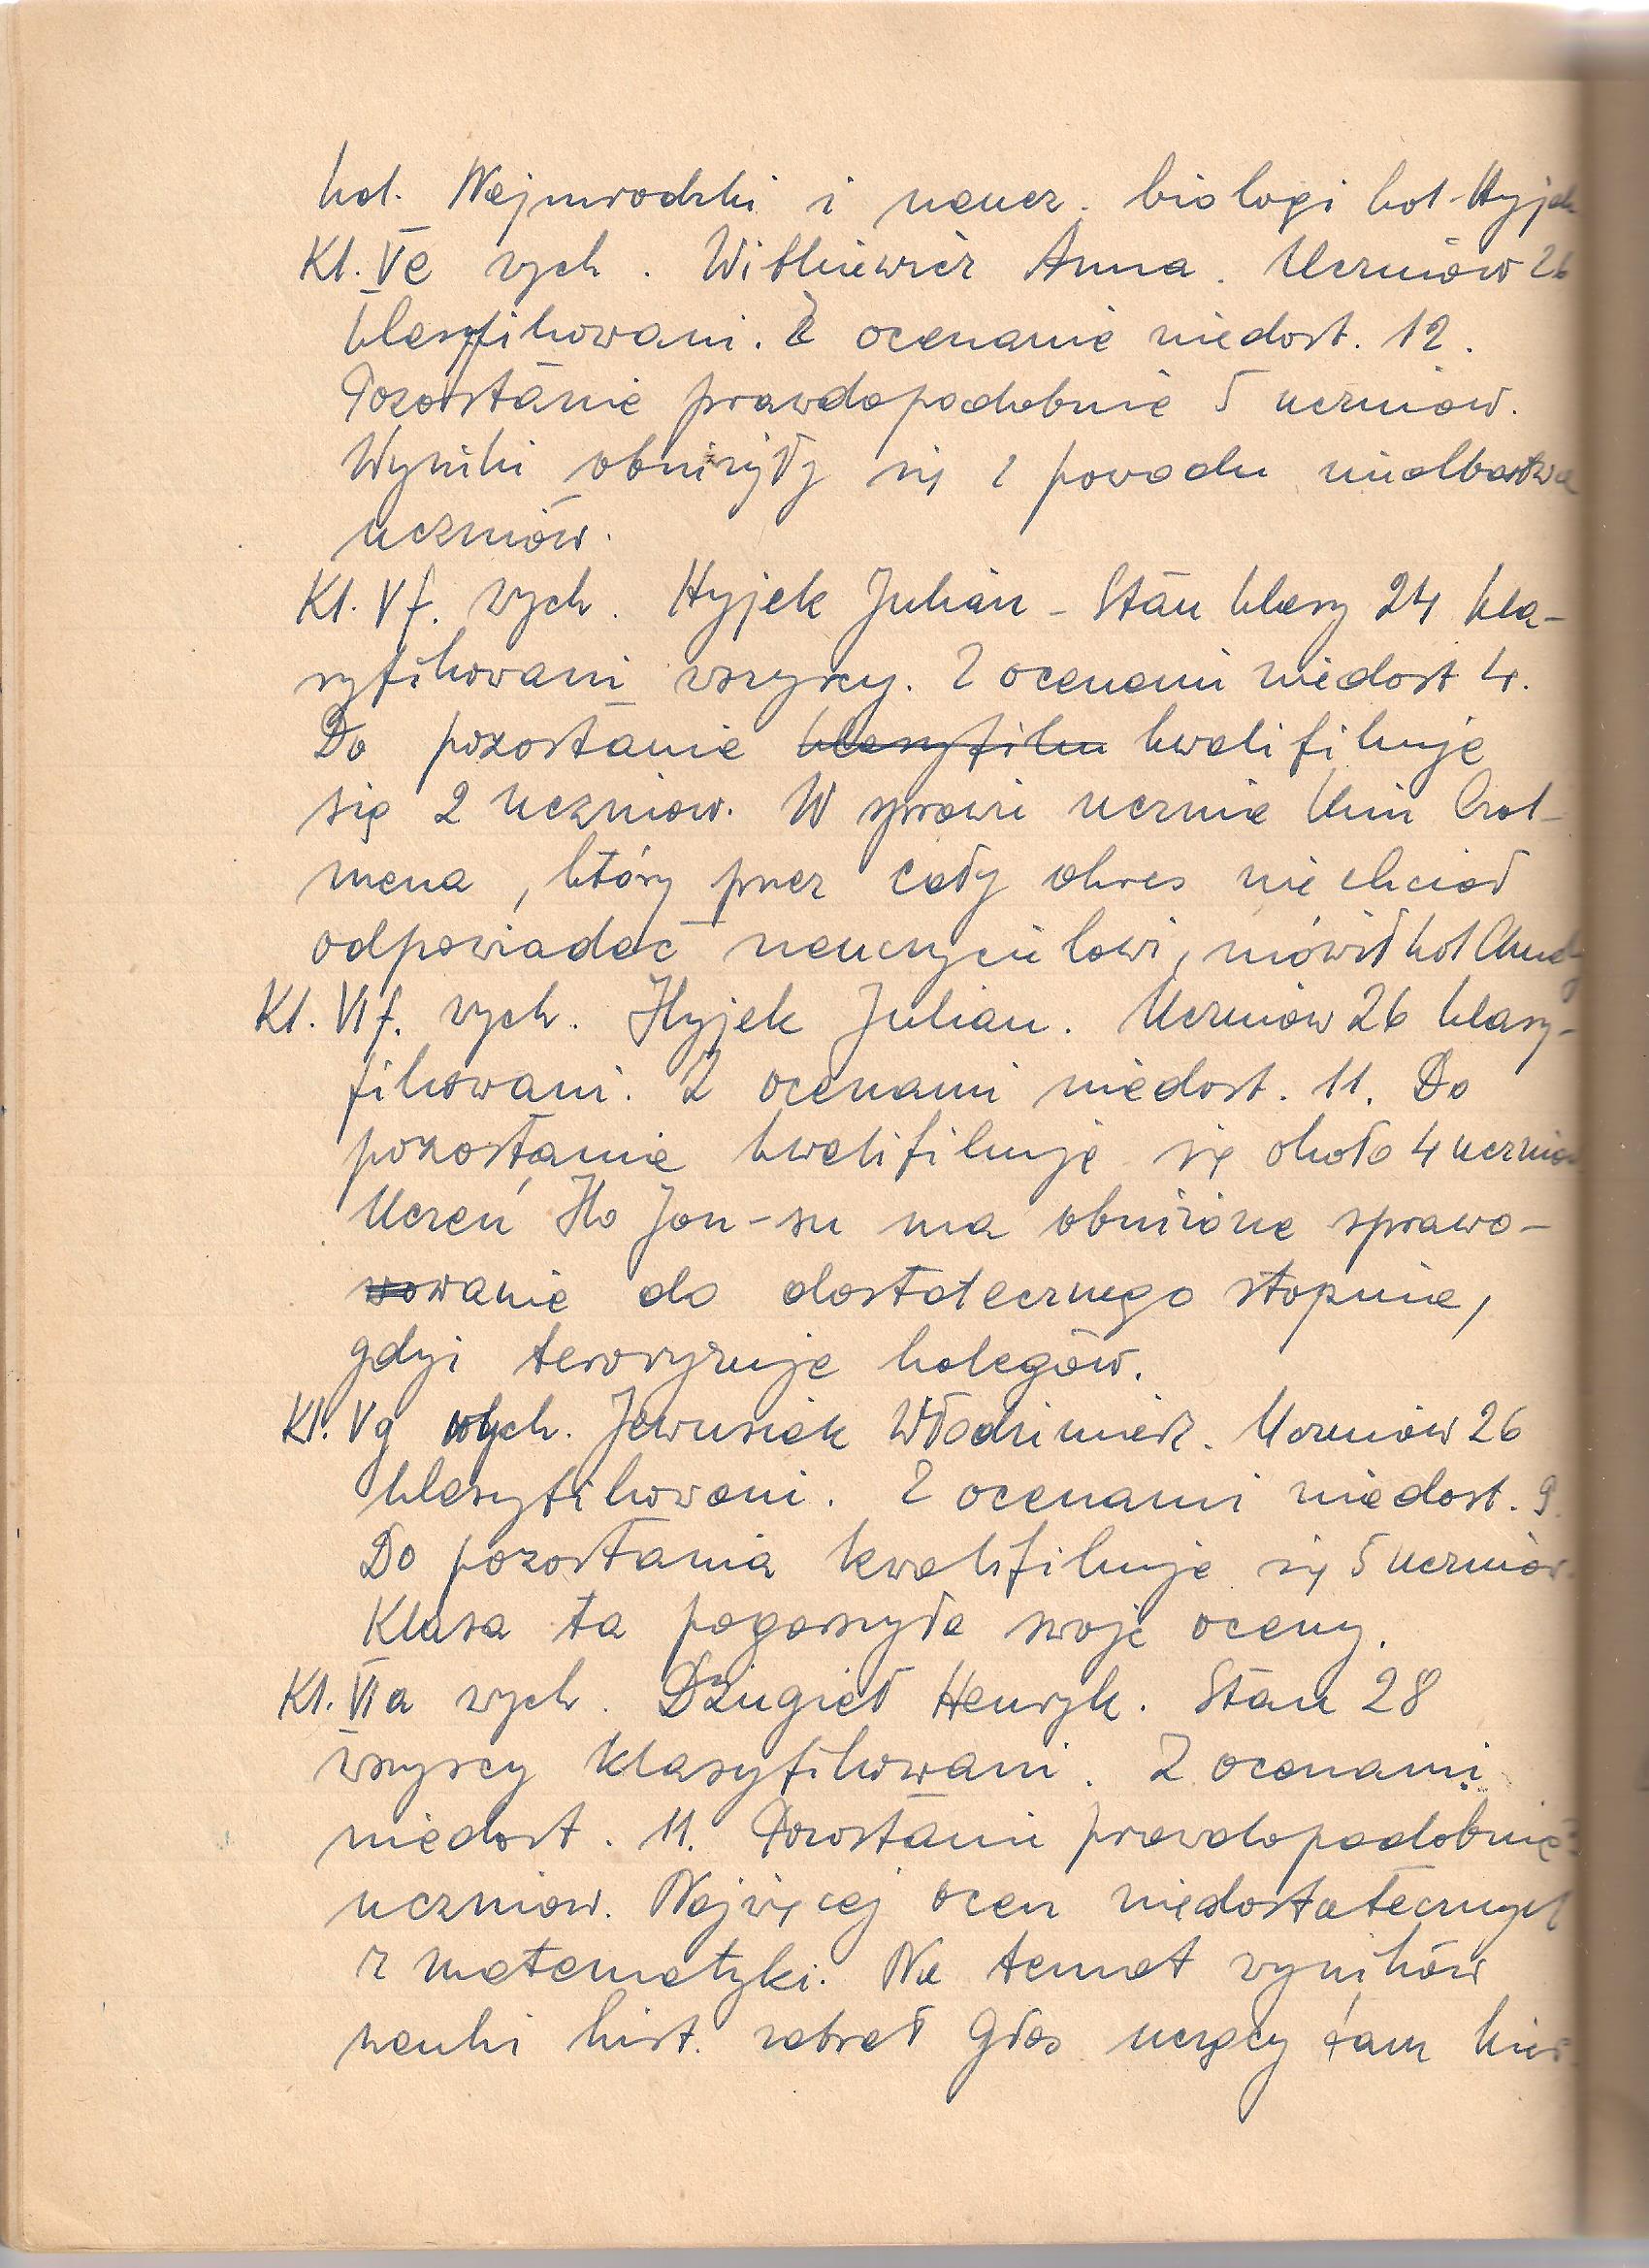 kol. Wajmrodzki i naucz. biologi kol. Hyjek
Kl. Ve wych. Witkiewicz Anna. Uczniów 26
klasyfikowani. Z ocenanie niedost. 12.
Pozostanie prawdopodobnie 5 uczniów.
Wyniki obniżyły się z powodu niedbastwa
uczniów.
Kl. Vf. wych. Hyjek Julian – Stan klasy 24 kla-
syfikowani wszyscy. Z ocenami niedost 4.
Do pozostanie klasyfiku kwalifikuje
się 2 uczniow. W sprawie ucznia Kim
mena, który przez cały okres nie chciał
odpowiadać nauczycielowi, mówił kol
Kl. VIf. wych. Hyjek Julian. Uczniow 26 klasy-
fikowani. Z ocenami niedost. 11. Do
pozostanie kwalifikuje się około 4 uczniow
Uczeń Ho Jon-su ma obniżone sprawo-
wowanie do dostatecznego stopnia,
gdyż teroryzuje kolegów.
Kl. Vg wych. Jawusiak Włodzimierz. Uczniów 26
klasyfikowani. Z ocenami niedost. 9.
Do pozostania kwalifikuje się 5 uczniów.
Klasa ta pogorszyła swoje oceny.
Kl. VIa wych. Dźugieł Henryk. Stan 28
wszyscy klasyfikowani. Z ocenami
niedost. 11. Pozostanie prawdopodobnie
uczniow. Najwięcej ocen niedostatecznych
z matematyki. Na temat wyników
nauki hist. zabrał głos uczący tam